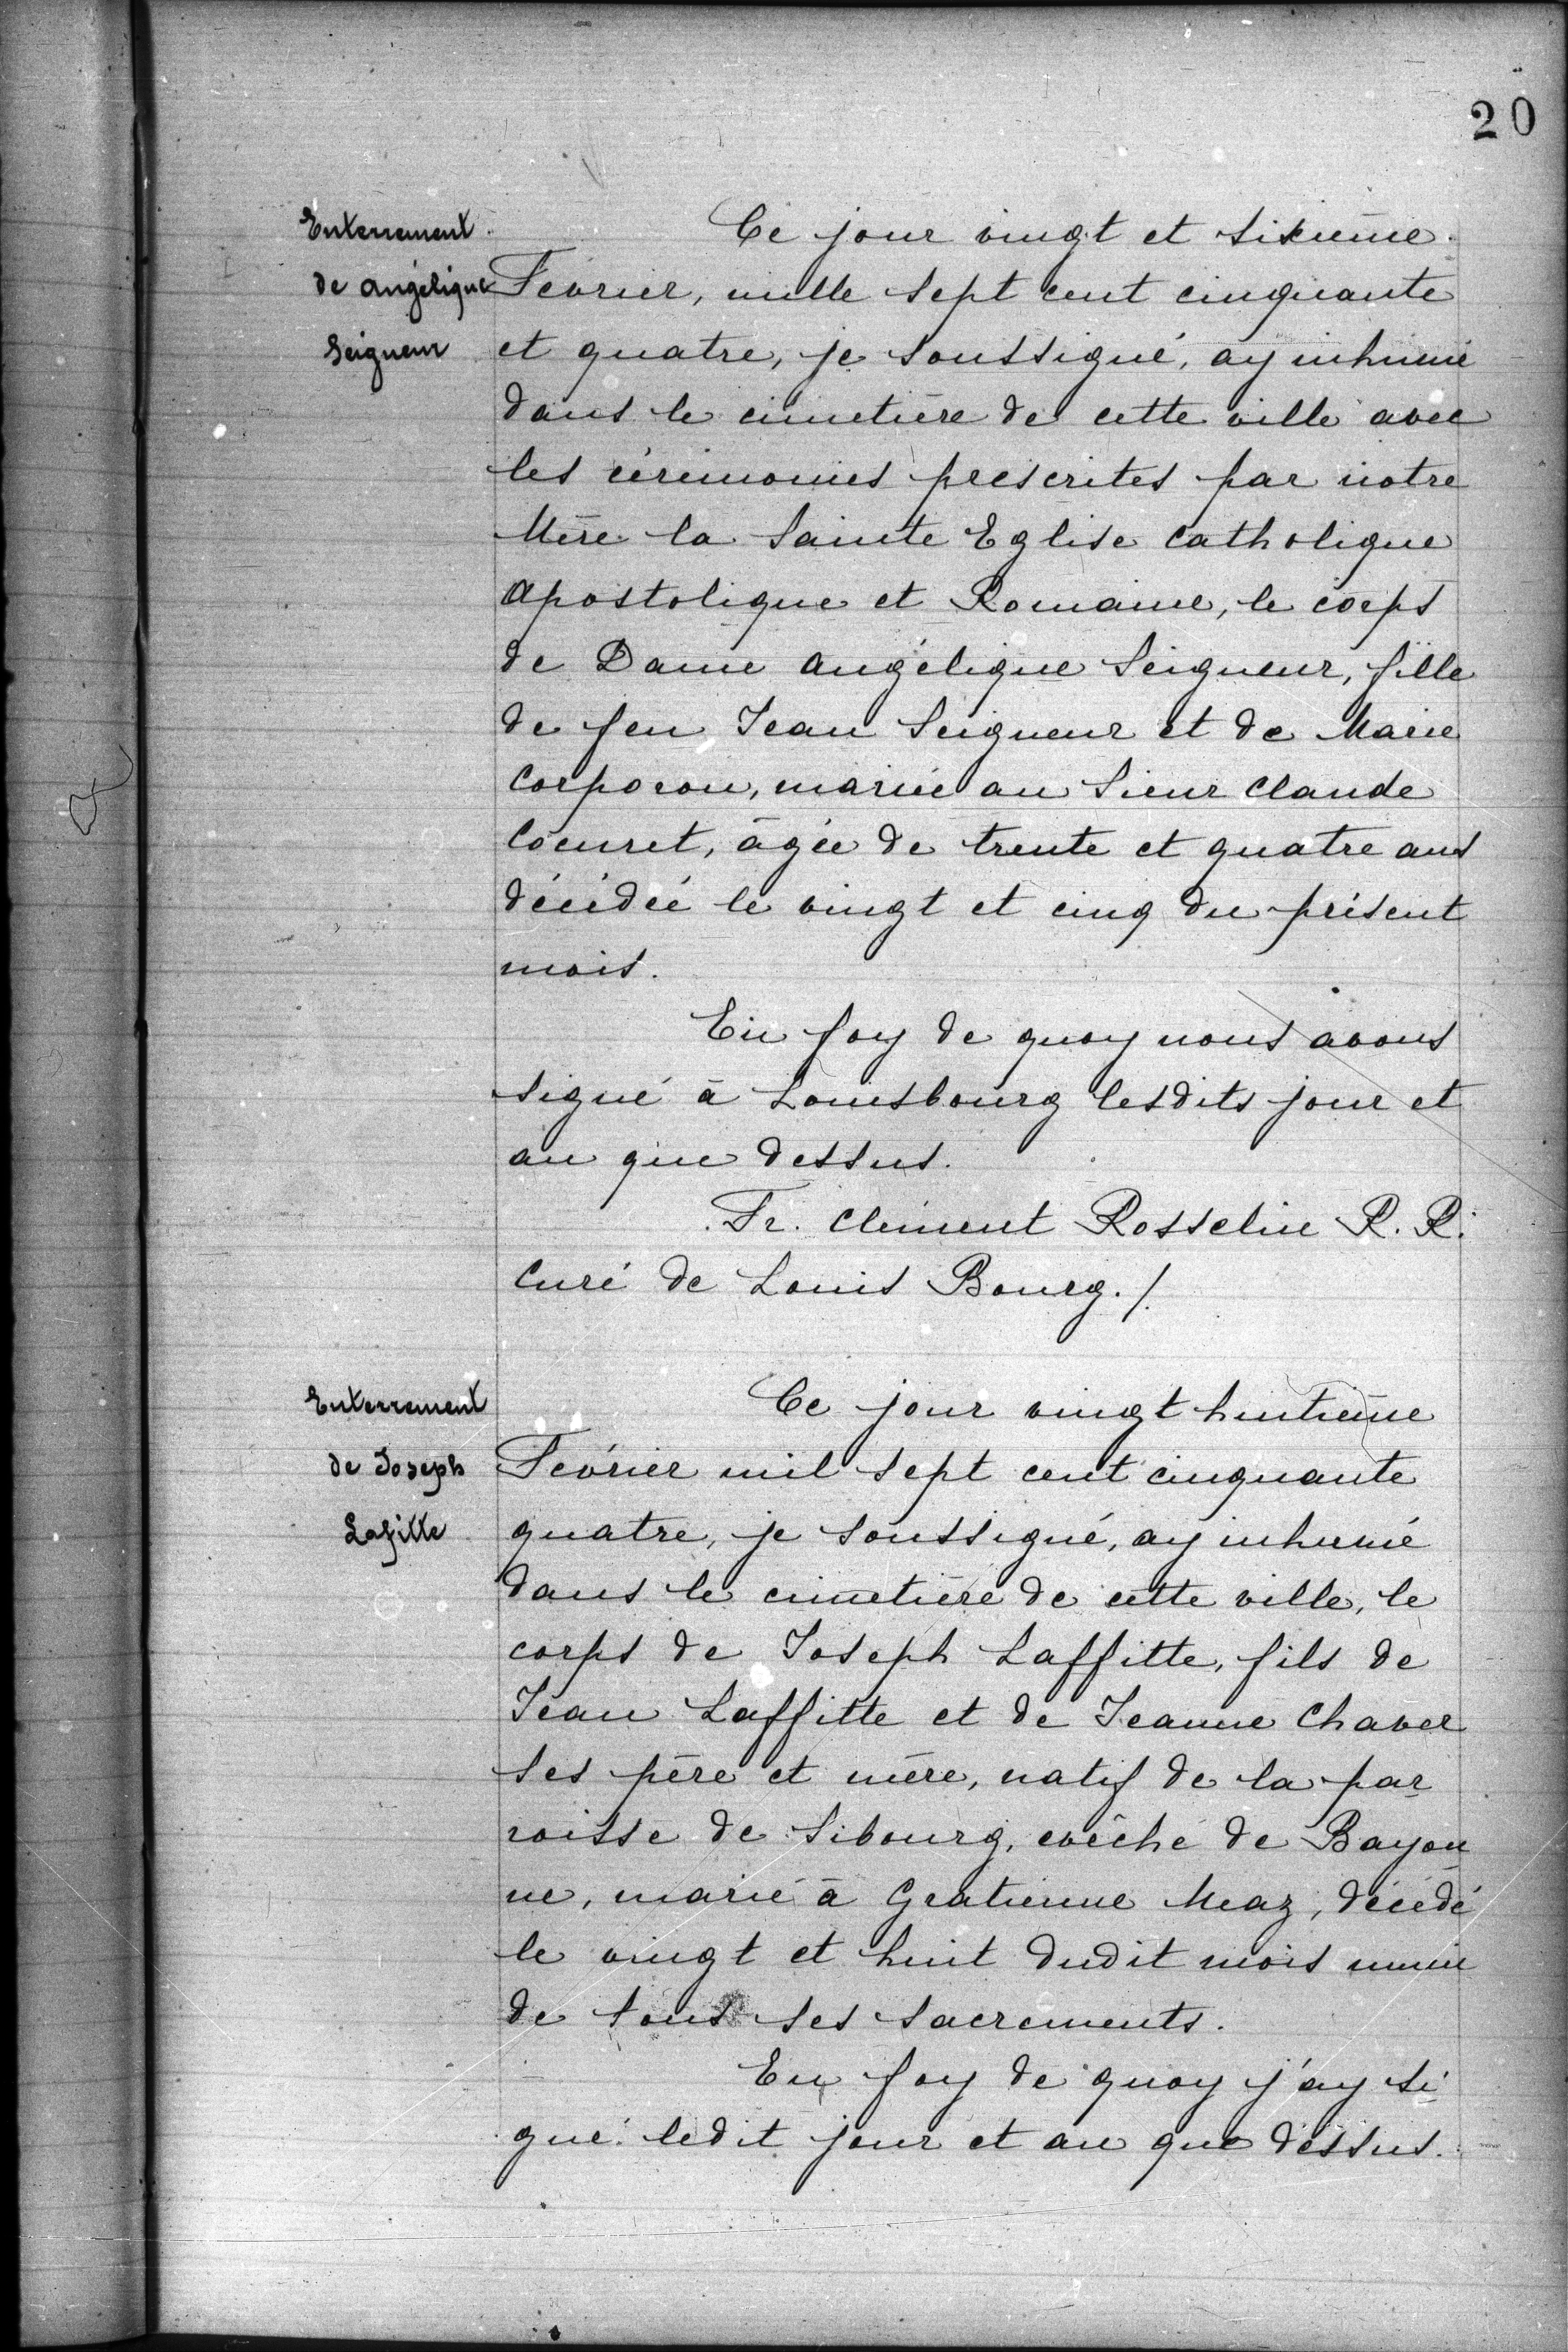 20
Enterrement
de Angélique
Seigneur
Ce jour vingt et sixième
Février, mille sept cent cinquante
et quatre, je soussigné, ay inhumé
dans le cimetière de cette ville avec
les cérémonies prescrites par notre
Mère la Sainte Eglise Catholique
Apostolique et Romaine, le corps
de Dame Angélique Seigneur, fille
de feu Jean Seigneur et de Marie
Corporon, mariée au Sieur Claude
Coeuret, âgée de trente et quatre ans
décédée le vingt et cinq du présent
mois.
En foy de quoy nous avons
signé à Louisbourg lesdits jour et
an que dessus.
Fr. Clément Rosselin R. R.
Curé de Louis Bourg./.
Enterrement
de Joseph
Lafitte
Ce jour vingt huitième
Février mil sept cent cinquante
quatre, je soussigné, ay inhumé
dans le cimetière de cette ville, le
corps de Joseph Laffitte, fils de
Jean Laffitte et de Jeanne Chaver
ses père et mère, natif de la par
roisse de Sibourg, evêché de Bayon
ne, marié à Gratienne Meaz, décédé
le vingt et huit dudit mois muni
de tous ses sacrements.
En foy de quoy j'ay si
gné ledit jour et an que dessus.